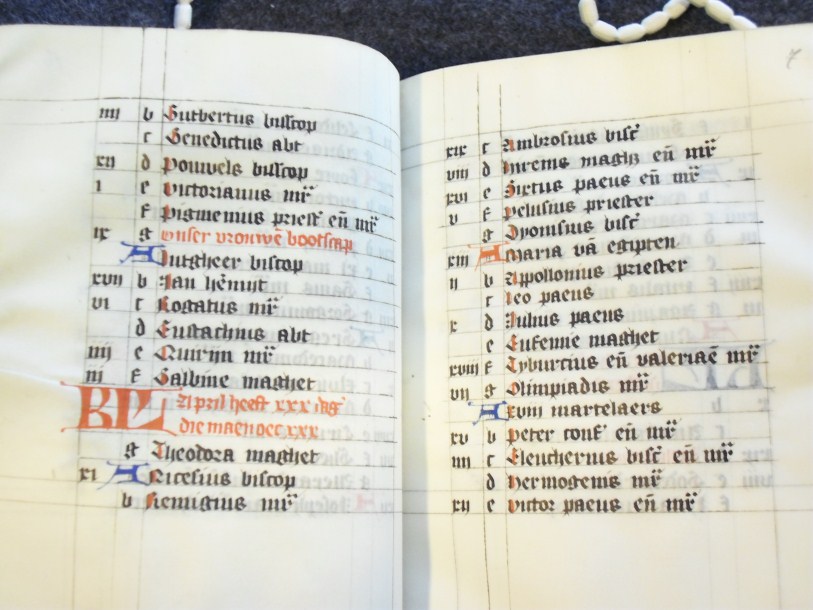 iiij b Gutbertus bisscop
c Benedictus abt
xij d Pouwels bisscop
i e Victorianus mr̄
f Pigmenius priest̄ en̄ mr̄
ix g onser vrouwē bootscap
A Lutgheer biscop
xvij b Jan
vi c Rogatus mr̄
d Eustachius abt
iiij e Quirijn mr̄
iij f Balbine maghet
KL April heeft xxx daḡ
die maen oec xxx
g Theodora maghet
xi A Nicesius biscop
b Remigius mr̄
7
xix c Ambrosius bisc̄
viij d en̄ mr̄
xvi e Sixtus paeus en̄ mr̄
v f Pelusius priester
g Dyonisius bisc̄
xiij A Maria vā egipten
ij b Appollonius priester
c Leo paeus
x d Julius paeus
e Eufemie maghet
xviij f Tyburtius en̄ valeriaē mr̄
vij g Olimpiadis mr̄
A xviij martelaers
xv b Peter conf̄ en̄ mr̄
iiij c Eleutherius bisc̄ en̄ mr̄
d Hermogenis mr̄
xij e Victor paeus en̄ mr̄